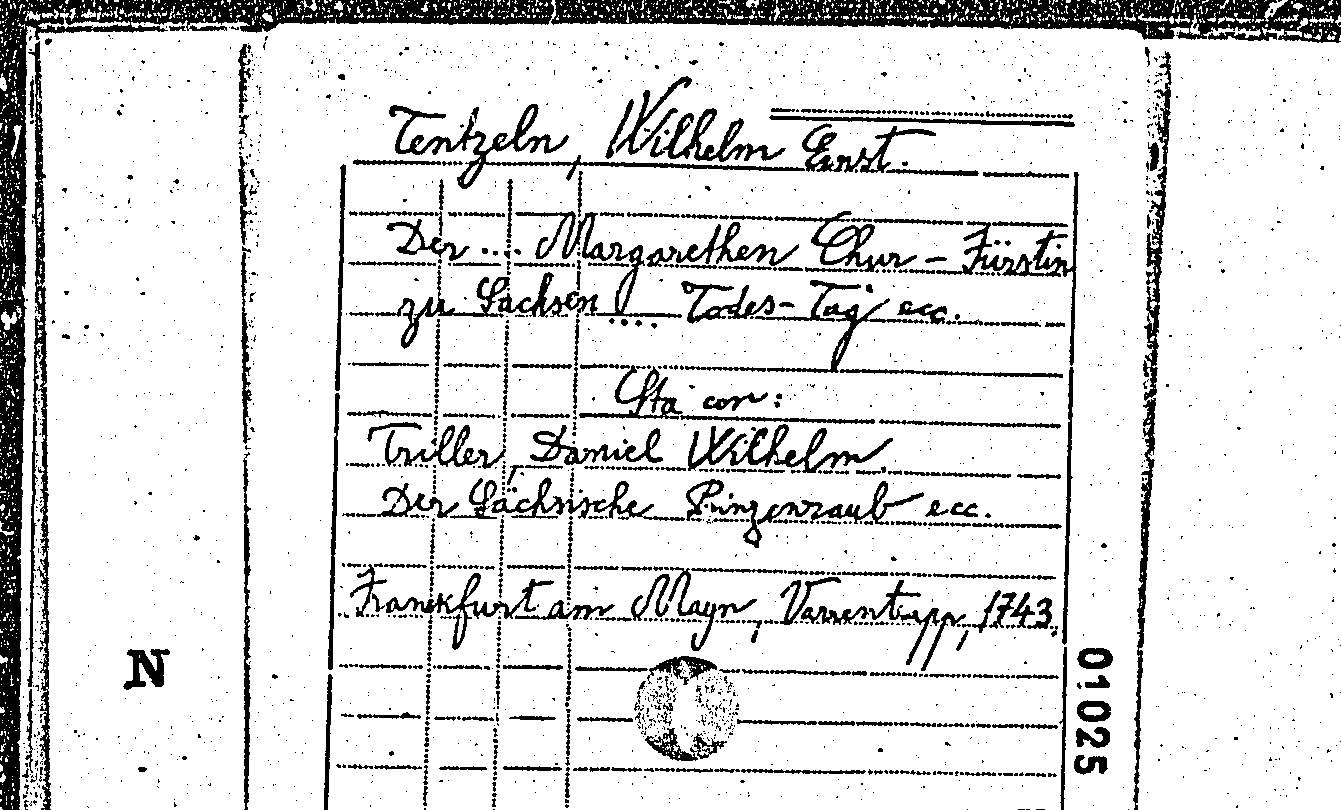 Tentzeln, Wilhelm Ernst.
Der .... Margarethen Chur-Fürstin
zu Sachsen .... Todes-Tag ecc.
Sta con:
Triller, Daniel Wilhelm.
Der Sächsische Prinzenraub ecc.
Franckfurt am Mayn, Varrentrapp, 1743.
N
01025